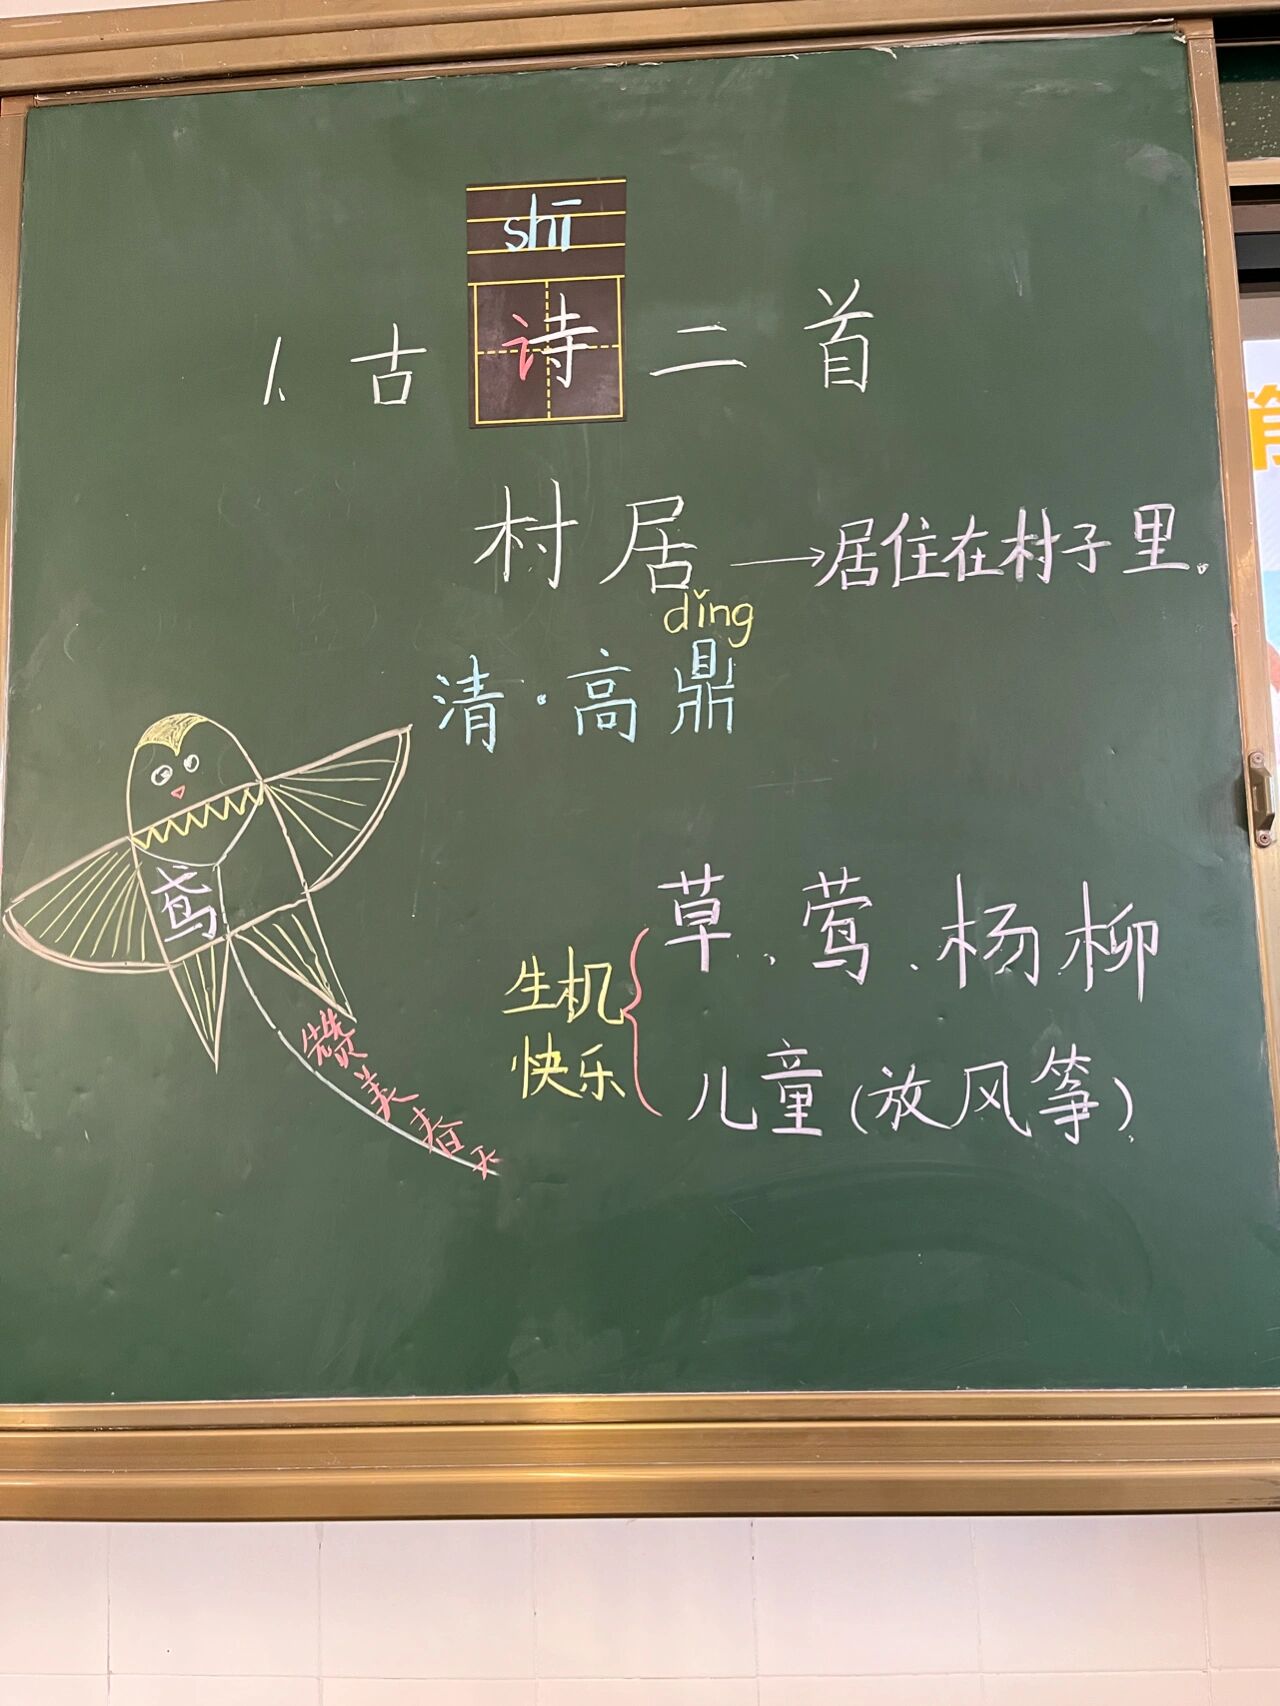 shī
1、古诗二首
村居→居住在村子里。
dǐng
清·高鼎
鸢
草、莺、杨柳
生机
快乐
儿童(放风筝)
赞美春天